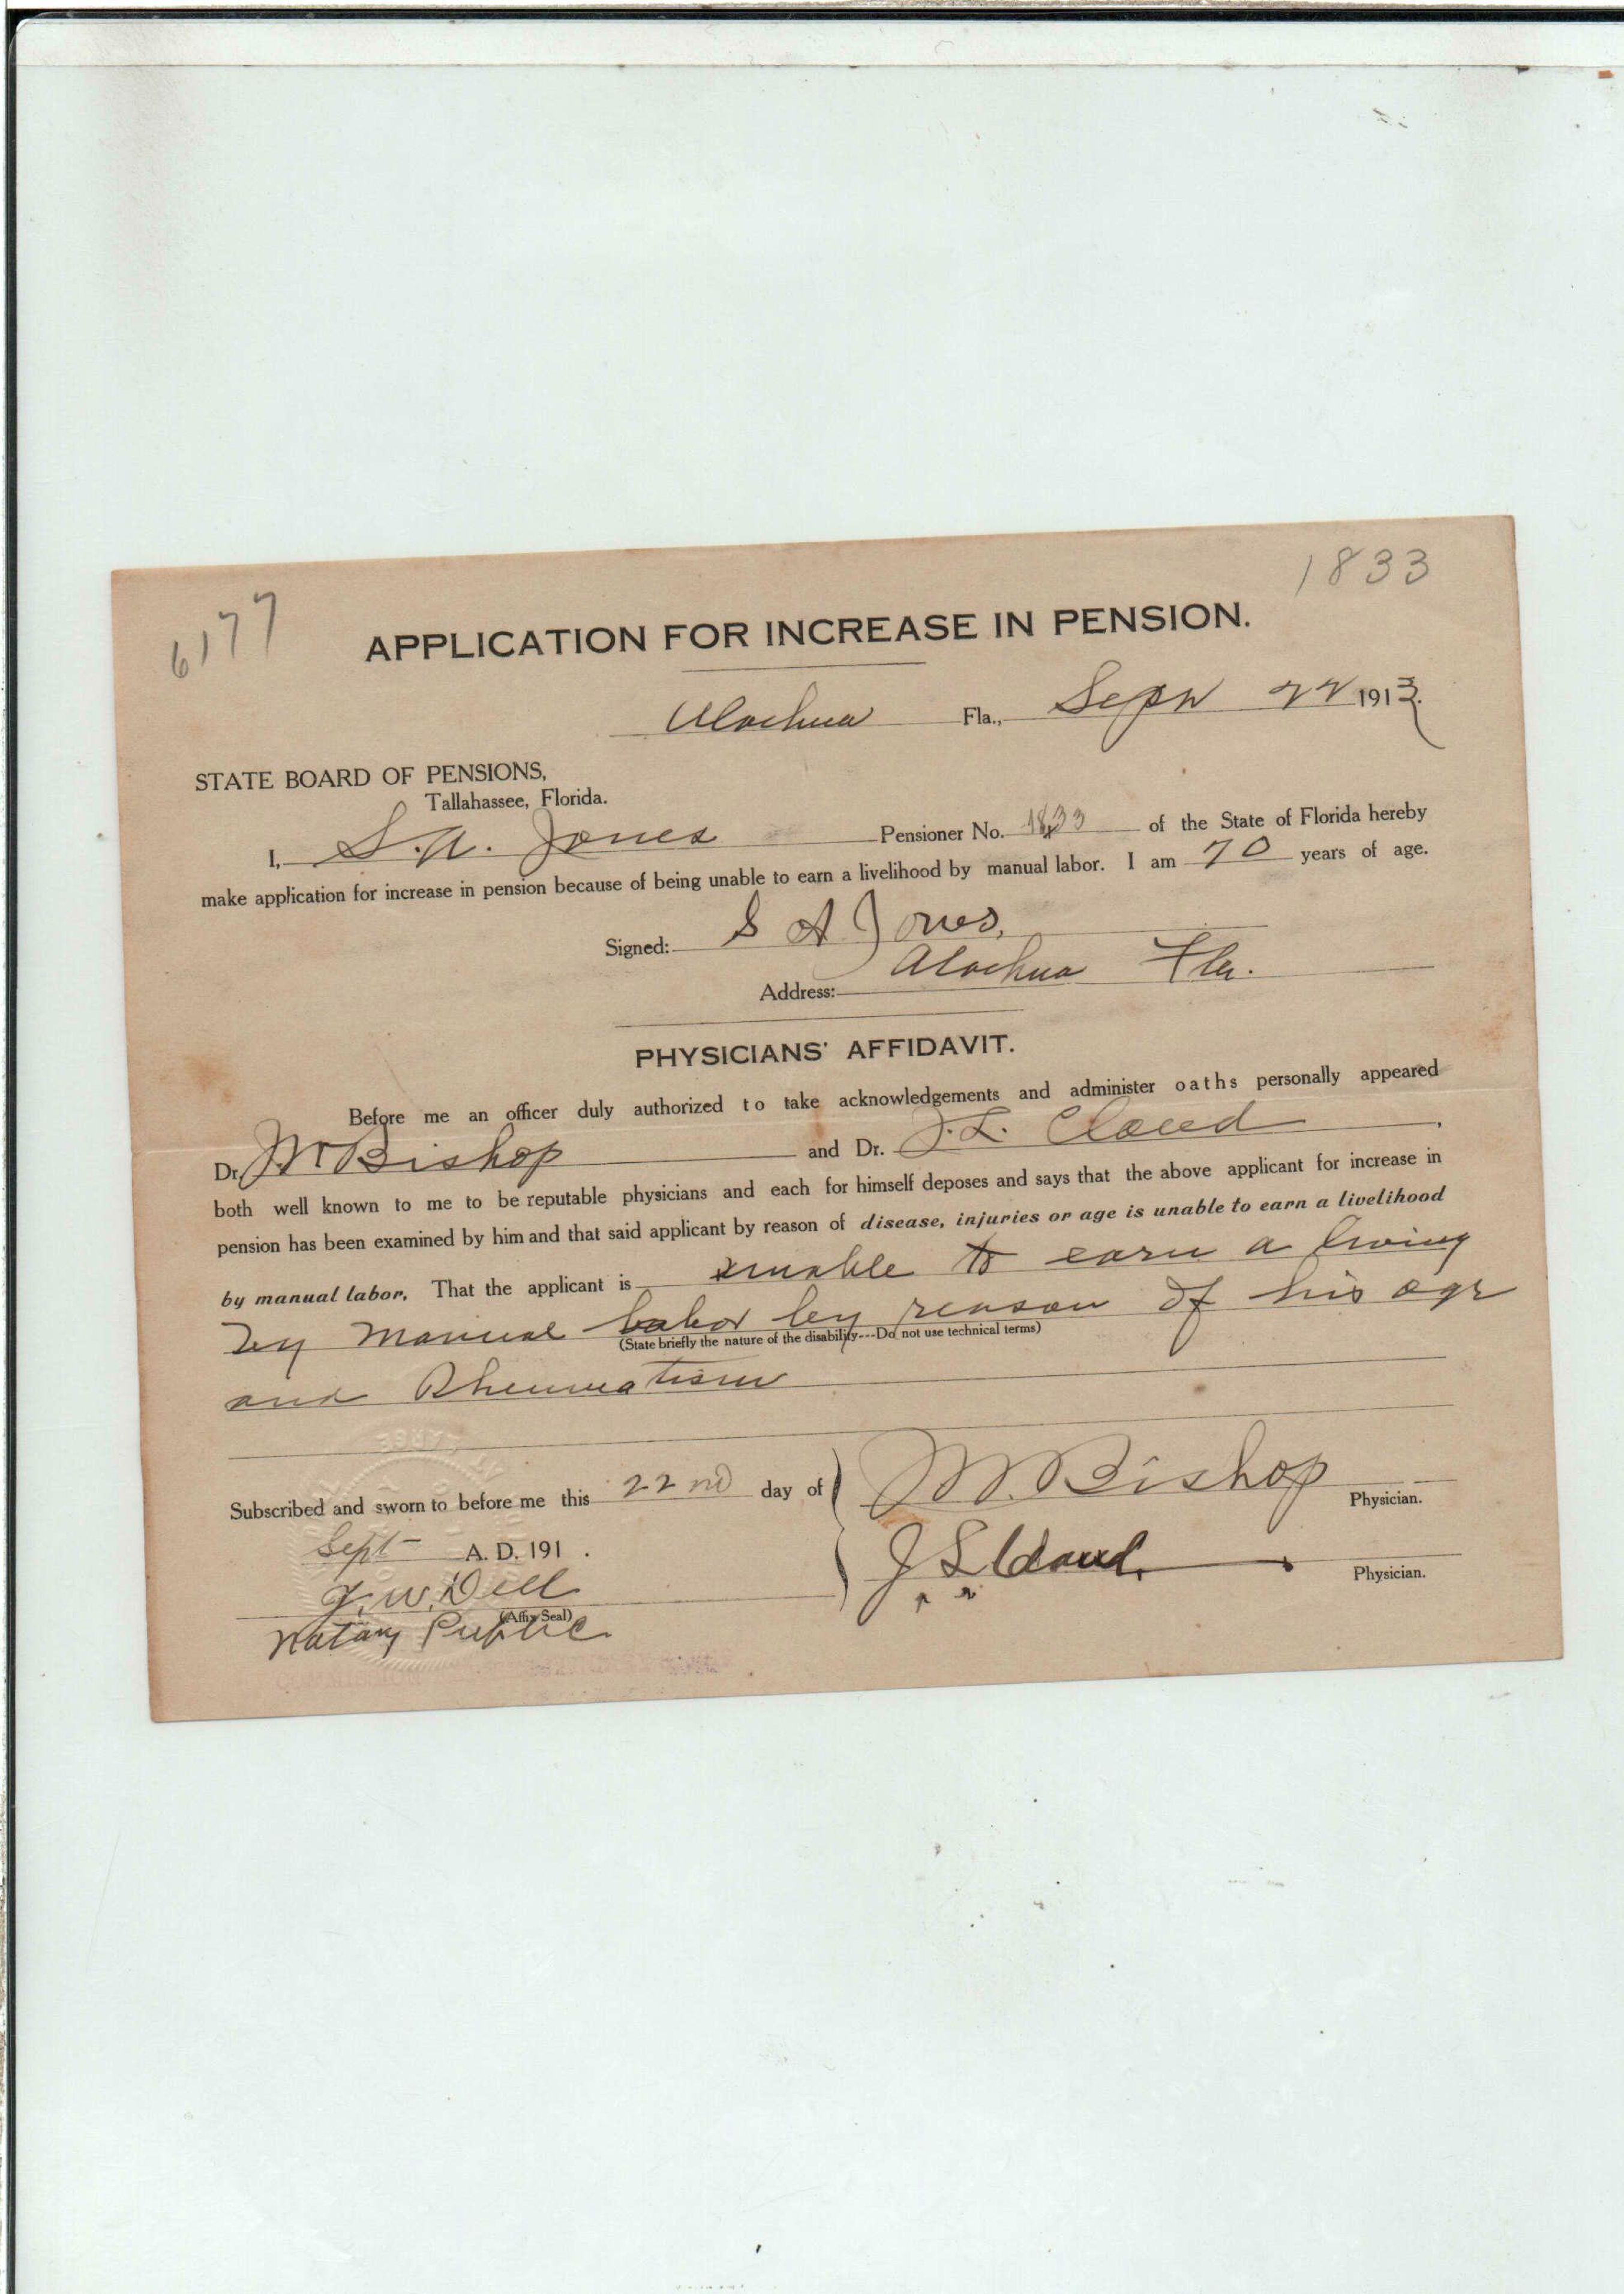 6177
1833
APPLICATION FOR INCREASE IN PENSION.
Alachua Fla., Sept 22 1913.
STATE BOARD OF PENSIONS,
Tallahassee, Florida.
I, S. A. Jones Pensioner No. 1833 of the State of Florida hereby
make application for increase in pension because of being unable to earn a livelihood by manual labor. I am 70 years of age.
Signed: S A Jones,
Address: Alachua Fla.
PHYSICIANS' AFFIDAVIT.
Before me an officer duly authorized to take acknowledgements and administer oaths personally appeared
Dr. Bishop and Dr. J. L. Cloud,
both well known to me to be reputable physicians and each for himself deposes and says that the above applicant for increase in
pension has been examined by him and that said applicant by reason of disease, injuries or age is unable to earn a livelihood
by manual labor. That the applicant is unable to earn a living
by manual labor by reason of his age
(State briefly the nature of the disability---Do not use technical terms)
and Rheumatism
Subscribed and sworn to before me this 22nd day of
Sept A. D. 191 .
J. W. Dell
(Affix Seal)
Notary Public
Bishop Physician.
J L Cloud. Physician.